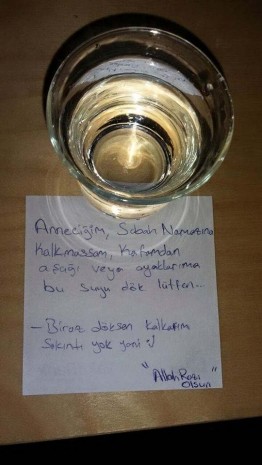 Anneciğim, Sabah Namazına
Kalkmassam, Kafamdan
aşağı veya ayaklarıma
bu suyu dök lütfen...
- Biraz döksen kalkarım
Sıkıntı yok yani :)
"Allah Razı
Olsun"